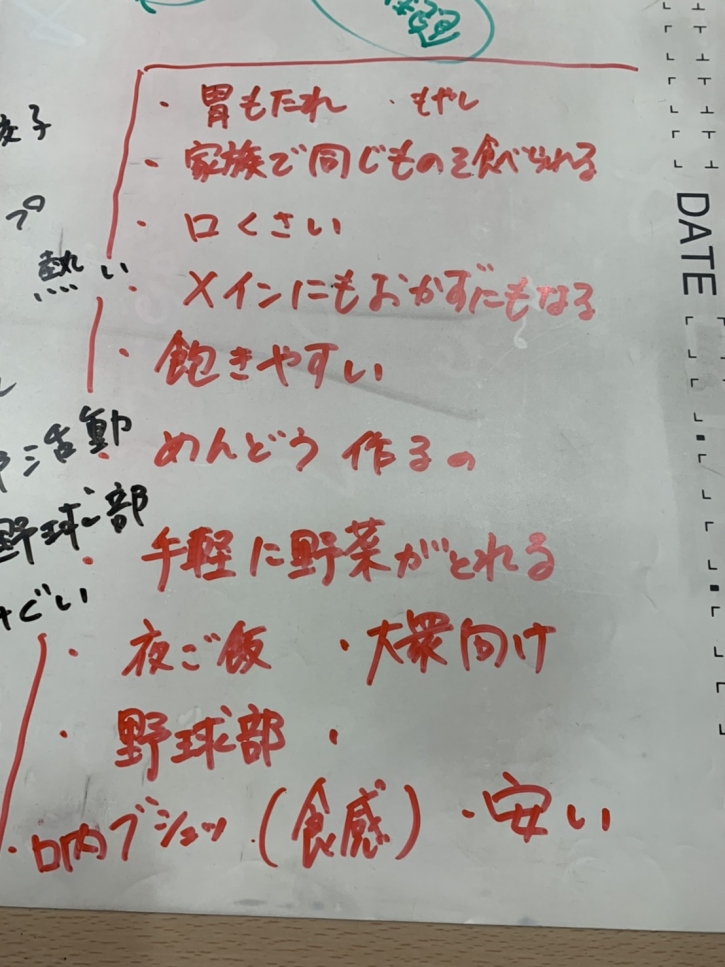 ・胃もたれ ・もやし
・家族で同じものを食べられる
・口くさい
熱い
・メインにもおかずにもなる
・飽きやすい
・めんどう 作るの
活動
・手軽に野菜がとれる
野球部
・夜ご飯 ・大衆向け
・野球部 ・
・口内ブシュッ(食感) ・安い
DATE